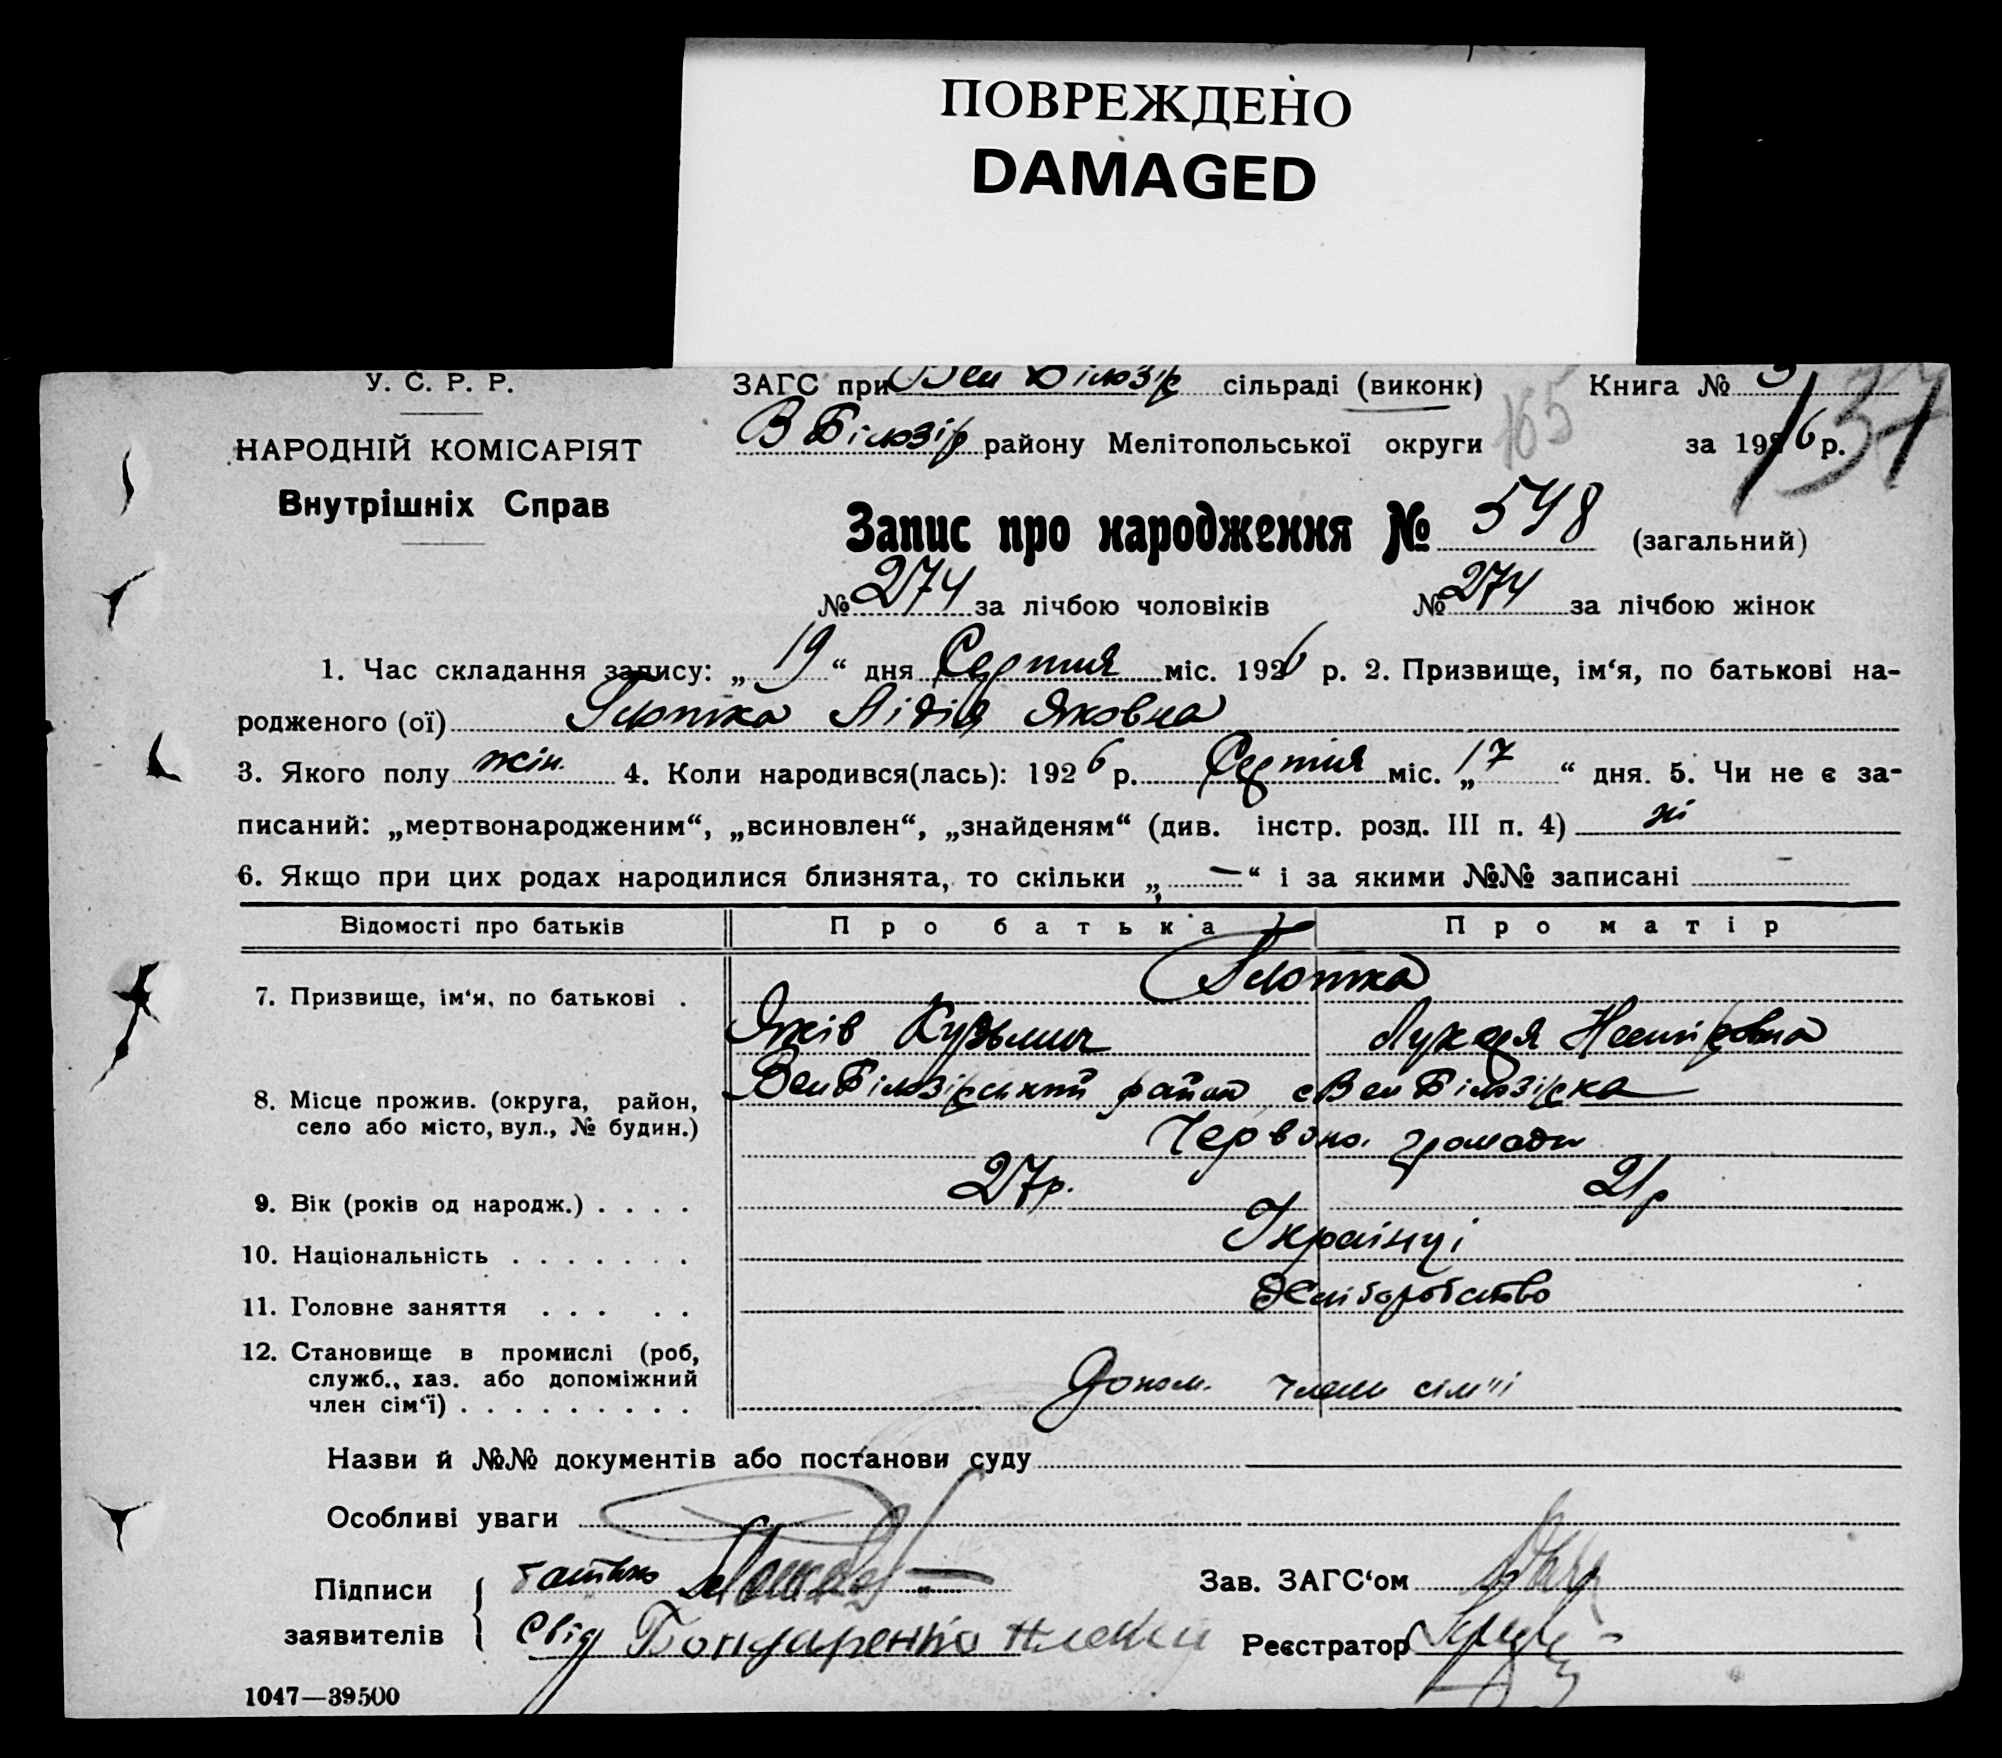 ПОВРЕЖДЕНО
DAMAGED
У. С. Р. Р.
ЗАГС при Вел Білозір сільраді (виконк) Книга №
НАРОДНІЙ КОМІСАРІЯТ
В Білозір району Мелітопольської округи 165 за 1926 р. 137
Внутрішніх Справ
Запис про народження № 548 (загальний)
№ 274 за лічбою чоловіків № 274 за лічбою жінок
1. Час складання запису: „ 19 “ дня Серпня міс. 1926 р. 2. Призвище, ім‘я, по батькові на-
родженого (ої) Лідія Яковна
3. Якого полу жін. 4. Коли народився(лась): 1926 р. Серпня міс. „ 17 “ дня. 5. Чи не є за-
писаний: „мертвонародженим“, „всиновлен“, „знайденям“ (див. інстр. розд. III п. 4) ні
6. Якщо при цих родах народилися близнята, то скільки „ — “ і за якими №№ записані
Відомості про батьків Про батька Про матір
7. Призвище, ім‘я, по батькові .
Яків Кузьмич
8. Місце прожив. (округа, район, ВелБілозірський район с Вел Білозірка
село або місто, вул., № будин.) Червоно. громади
9. Вік (років од народж.) . . . . 27р. 21р
10. Національність . . . . . . . Українці
11. Головне заняття . . . . . Хліборобство
12. Становище в промислі (роб,
служб., хаз. або допоміжний
член сім‘ї) . . . . . . . . . члени сім"ї
Назви й №№ документів або постанови суду
Особливі уваги
Підписи батько Зав. ЗАГС‘ом
заявителів Свід Бондаренко Реєстратор
1047—39500